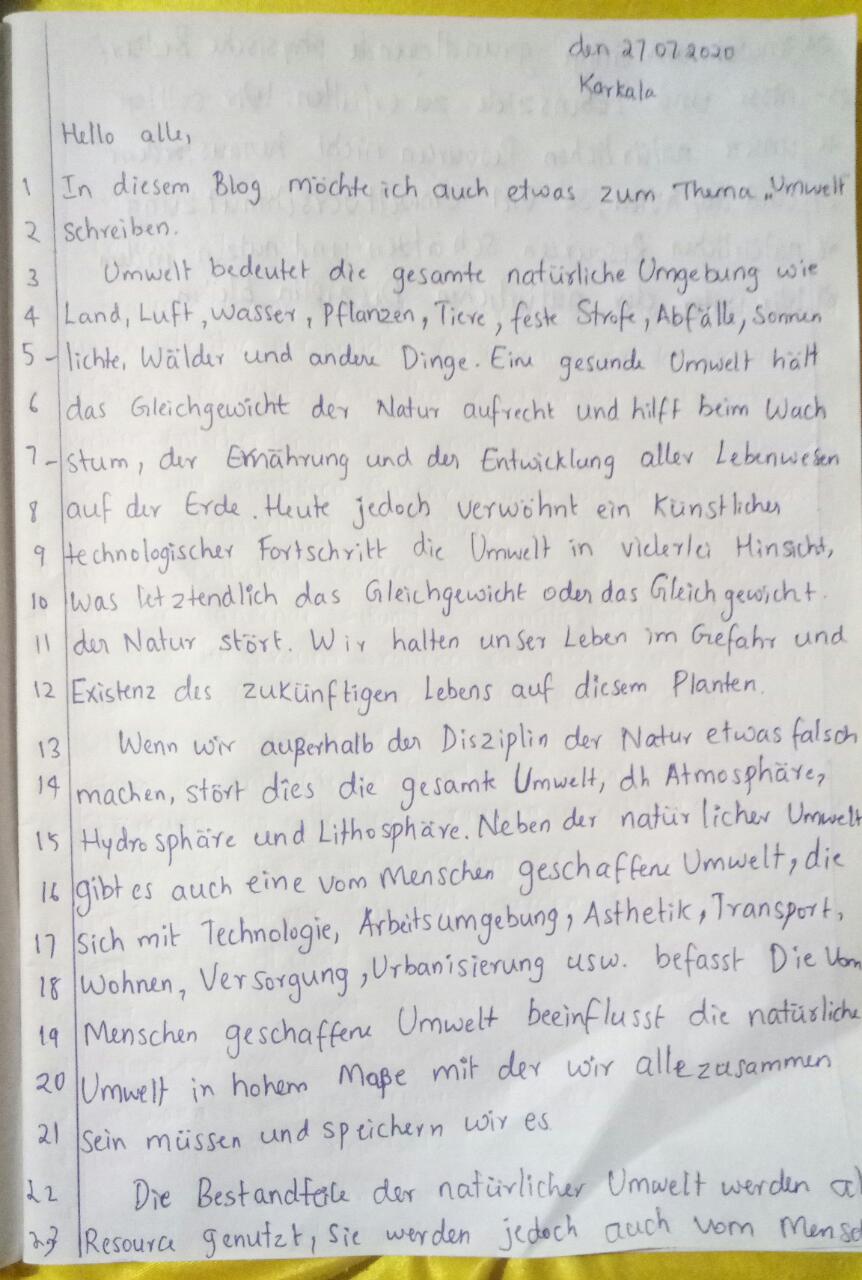 den 27 07 2020
Karkala
Hello alle,
1 In diesem Blog möchte ich auch etwas zum Thema „Umwelt
2 Schreiben.
3 Umwelt bedeutet die gesamte natürliche Umgebung wie
4 Land, Luft, Wasser, Pflanzen, Tiere, feste Strofe, Abfälle, Sonnen
5 - lichte, Wälder und andere Dinge. Eine gesunde Umwelt hält
6 das Gleichgewicht der Natur aufrecht und hilft beim Wach
7 - stum, der Ernährung und der Entwicklung aller Lebenwesen
8 auf der Erde. Heute jedoch verwöhnt ein Künstlicher
9 technologischer Fortschritt die Umwelt in vielerlei Hinsicht,
10 Was letztendlich das Gleichgewicht oder das Gleichgewicht.
11 der Natur stört. Wir halten unser Leben im Gefahr und
12 Existenz des zukünftigen Lebens auf diesem Planten.
13 Wenn wir außerhalb der Disziplin der Natur etwas falsch
14 machen, stört dies die gesamte Umwelt, dh Atmosphäre,
15 Hydrosphäre und Lithosphäre. Neben der natürlicher Umwelt
16 gibt es auch eine vom Menschen geschaffene Umwelt, die
17 sich mit Technologie, Arbeitsumgebung, Asthetik, Transport,
18 Wohnen, Versorgung, Urbanisierung usw. befasst Die vom
19 Menschen geschaffene Umwelt beeinflusst die natürliche
20 Umwelt in hohem Maße mit der wir alle zusammen
21 Sein müssen und speichern wir es
22 Die Bestandteile der natürlicher Umwelt werden al
23 Resource genutzt, sie werden jedoch auch vom Mensc